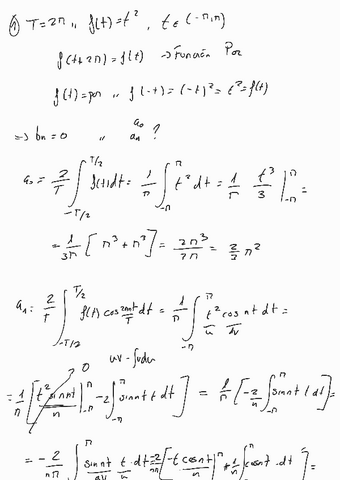 ① T=2π ,, f(t)=t² , t ∈ (-π,π)
f(t+2π) = f(t) → Función Per
f(t) = par ,, f(-t) = (-t)² = t² = f(t)
=> bn = 0 ,, a₀ an ?
a₀ = 2/T ∫_{-T/2}^{T/2} f(t)dt = 1/π ∫_{-π}^{π} t² dt = 1/π t³/3 |_{-π}^{π} =
= 1/3π [π³ + π³] = 2π³/3π = 2/3 π²
an = 2/T ∫_{-T/2}^{T/2} f(t) cos 2πnt/T dt = 1/π ∫_{-π}^{π} t² cos nt dt =
u dv
uv - ∫vdu
0
= 1/π [t² sin nt/n |_{-π}^{π} - 2/n ∫_{-π}^{π} sin nt t dt] = 1/π [-2/n ∫_{-π}^{π} sin nt t dt] =
= -2/πn ∫_{-π}^{π} sin nt t · dt = -2/πn [-t cos nt/n |_{-π}^{π} + 1/n ∫_{-π}^{π} cos nt · dt] =
dv u